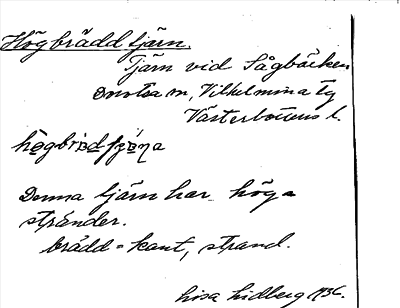 Högbräddtjärn.
Tjärn vid Sågbäcken
m, Vilhelmina tg
Västerbottens l.
Denna tjärn har höga
stränder.
brädd = kant, strand.
Lisa Lidberg 1936.